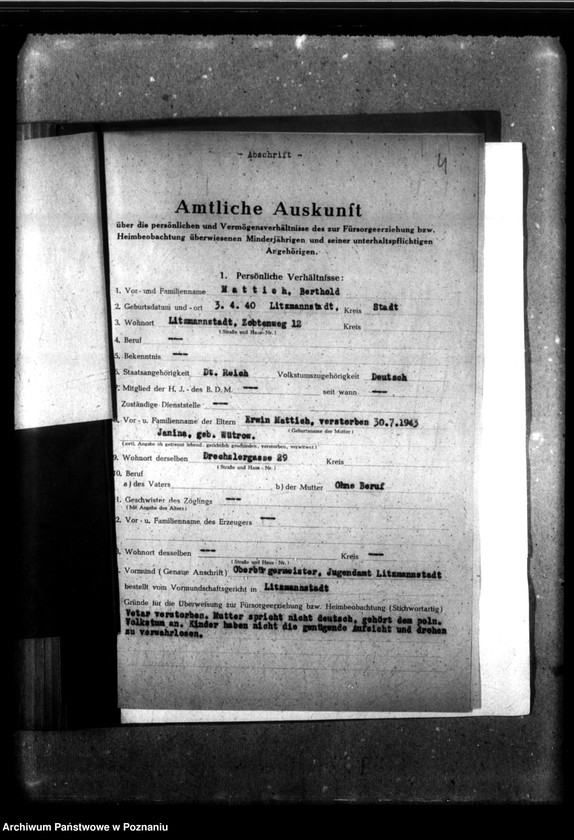 - Abschrift -
4
Amtliche Auskunft
über die persönlichen und Vermögensverhältnisse des zur Fürsorgeerziehung bzw.
Heimbeobachtung überwiesenen Minderjährigen und seiner unterhaltspflichtigen
Angehörigen.
1. Persönliche Verhältnisse:
1. Vor- und Familienname Mattich, Berthold
2. Geburtsdatum und -ort 3. 4. 40 Litzmannstadt, Kreis Stadt
3. Wohnort Litzmannstadt, Zobtenweg 12 Kreis
(Straße und Haus-Nr.)
4. Beruf ---
5. Bekenntnis ---
6. Staatsangehörigkeit Dt. Reich Volkstumszugehörigkeit Deutsch
7. Mitglied der H. J. - des B. D. M. --- seit wann ---
Zuständige Dienststelle ---
Vor- u. Familienname der Eltern Erwin Mattich, verstorben 30.7.1943
(Geburtsname der Mutter)
Janina, geb. Wütrow.
(evtl. Angabe ob getrennt lebend, gerichtlich geschieden, verstorben, verwitwet)
9. Wohnort derselben Drechslergasse 29 Kreis
(Straße und Haus-Nr.)
10. Beruf
a) des Vaters b) der Mutter Ohne Beruf
1. Geschwister des Zöglings ---
(Mit Angabe des Alters)
2. Vor- u. Familienname des Erzeugers ---
3. Wohnort desselben --- Kreis ---
(Straße und Haus-Nr.)
Vormund (Genaue Anschrift) Oberbürgermeister, Jugendamt Litzmannstadt
bestellt vom Vormundschaftsgericht in Litzmannstadt
Gründe für die Überweisung zur Fürsorgeerziehung bzw. Heimbeobachtung (Stichwortartig)
Vater verstorben. Mutter spricht nicht deutsch, gehört dem poln.
Volkstum an. Kinder haben nicht die genügende Aufsicht und drohen
zu verwahrlosen.
Archiwum Państwowe w Poznaniu